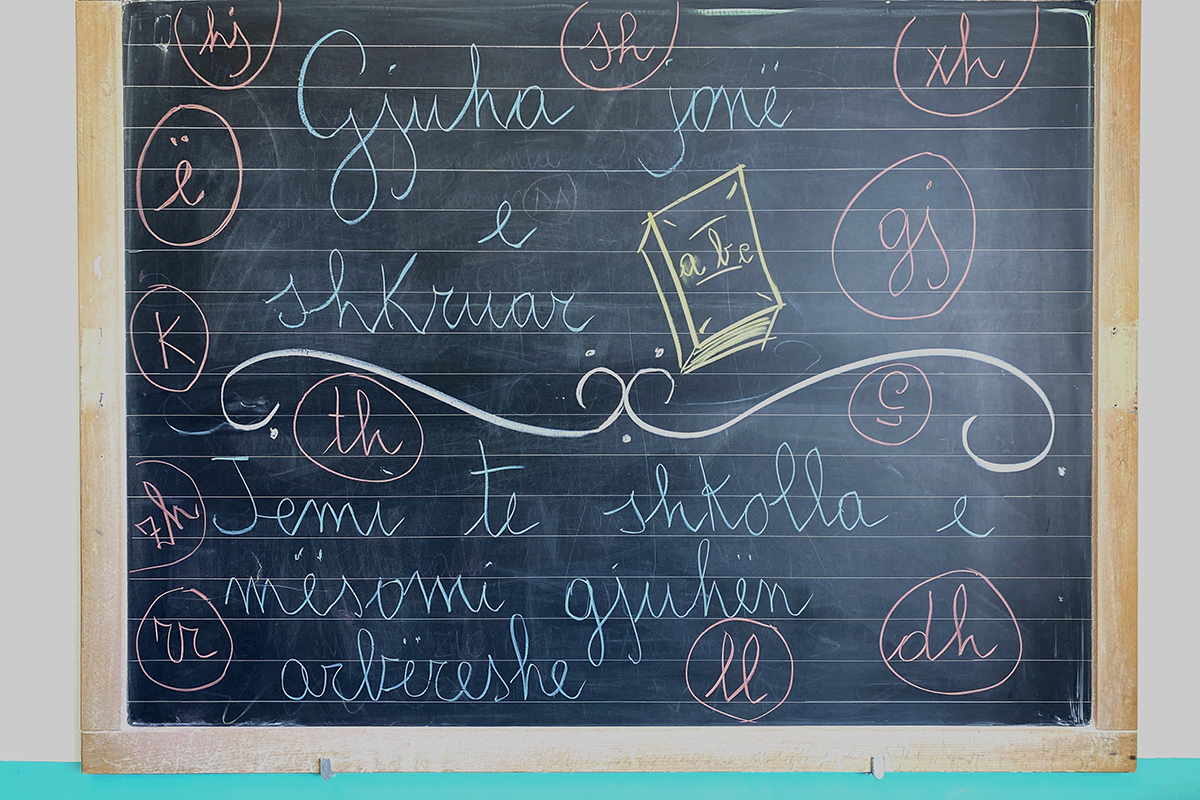 hj sh xh
Gjuha jonë
ë
e
gj
abc
shkruar
K
th
zh
Jemi te shkolla e
mësomi gjuhën
rr
dh
arbëreshe
ll